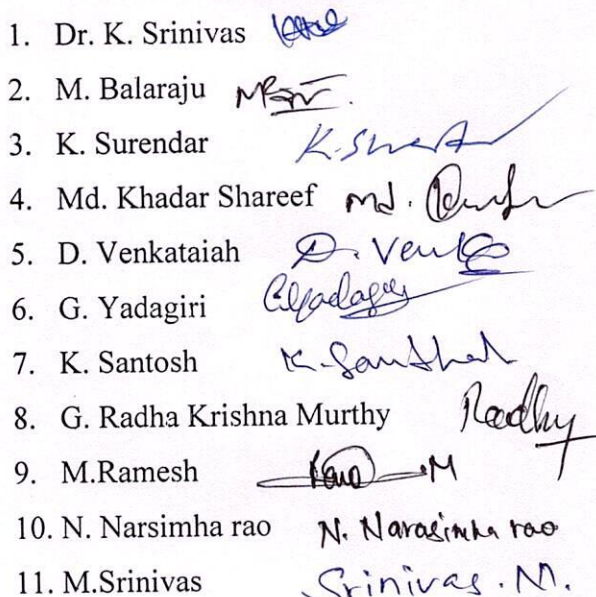 1. Dr. K. Srinivas
2. M. Balaraju
3. K. Surendar K.
4. Md. Khadar Shareef Md.
5. D. Venkataiah D. Venk
6. G. Yadagiri G Yadagiri
7. K. Santosh K. Santhosh
8. G. Radha Krishna Murthy Radhy
9. M.Ramesh M
10. N. Narsimha rao N. Narasimha rao
11. M.Srinivas Srinivas. M.